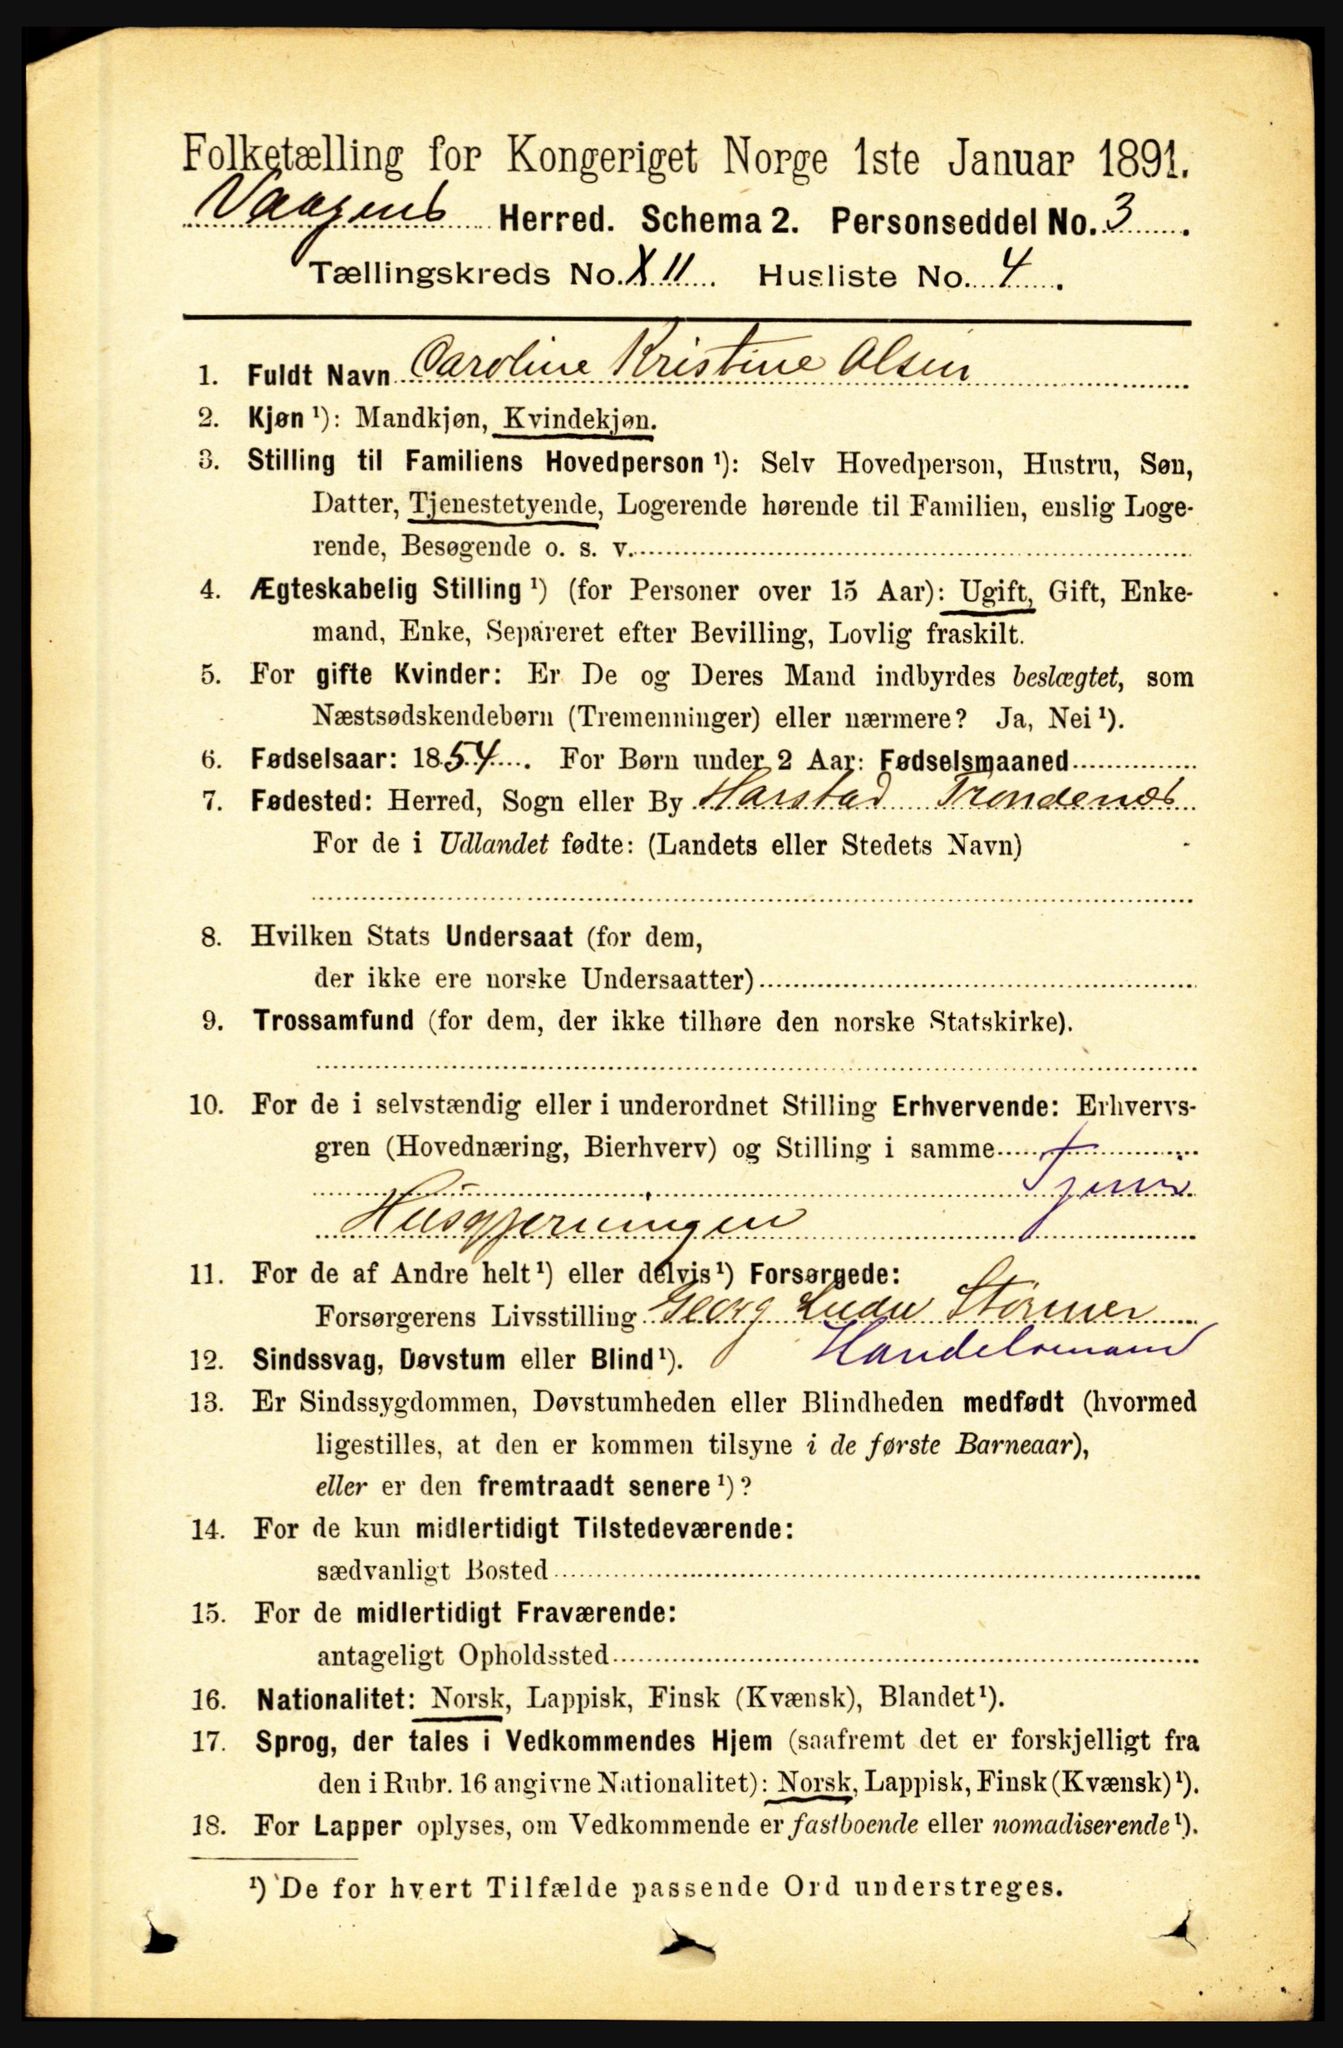 Folketælling for Kongeriget Norge 1ste Januar 1891.
Vaagens Herred. Schema 2. Personseddel No. 3.
Tællingskreds No. XII. Husliste No. 4.
1. Fuldt Navn Caroline Kristine Olsen
2. Kjøn ¹): Mandkjøn, Kvindekjøn.
3. Stilling til Familiens Hovedperson ¹): Selv Hovedperson, Hustru, Søn,
Datter, Tjenestetyende, Logerende hørende til Familien, enslig Loge-
rende, Besøgende o. s. v.
4. Ægteskabelig Stilling ¹) (for Personer over 15 Aar): Ugift, Gift, Enke-
mand, Enke, Separeret efter Bevilling, Lovlig fraskilt.
5. For gifte Kvinder: Er De og Deres Mand indbyrdes beslægtet, som
Næstsødskendebørn (Tremenninger) eller nærmere? Ja, Nei ¹).
6. Fødselsaar: 1854. For Børn under 2 Aar: Fødselsmaaned
7. Fødested: Herred, Sogn eller By Harstad Trondenæs
For de i Udlandet fødte: (Landets eller Stedets Navn)
8. Hvilken Stats Undersaat (for dem,
der ikke ere norske Undersaatter)
9. Trossamfund (for dem, der ikke tilhøre den norske Statskirke).
10. For de i selvstændig eller i underordnet Stilling Erhvervende: Erhvervs-
gren (Hovednæring, Bierhverv) og Stilling i samme
Husgjerningen
11. For de af Andre helt ¹) eller delvis ¹) Forsørgede:
Forsørgerens Livsstilling Georg Størmer
Handelsmand
12. Sindssvag, Døvstum eller Blind ¹).
13. Er Sindssygdommen, Døvstumheden eller Blindheden medfødt (hvormed
ligestilles, at den er kommen tilsyne i de første Barneaar),
eller er den fremtraadt senere ¹)?
14. For de kun midlertidigt Tilstedeværende:
sædvanligt Bosted
15. For de midlertidigt Fraværende:
antageligt Opholdssted
16. Nationalitet: Norsk, Lappisk, Finsk (Kvænsk), Blandet ¹).
17. Sprog, der tales i Vedkommendes Hjem (saafremt det er forskjelligt fra
den i Rubr. 16 angivne Nationalitet): Norsk, Lappisk, Finsk (Kvænsk) ¹).
18. For Lapper oplyses, om Vedkommende er fastboende eller nomadiserende ¹).
¹) De for hvert Tilfælde passende Ord understreges.